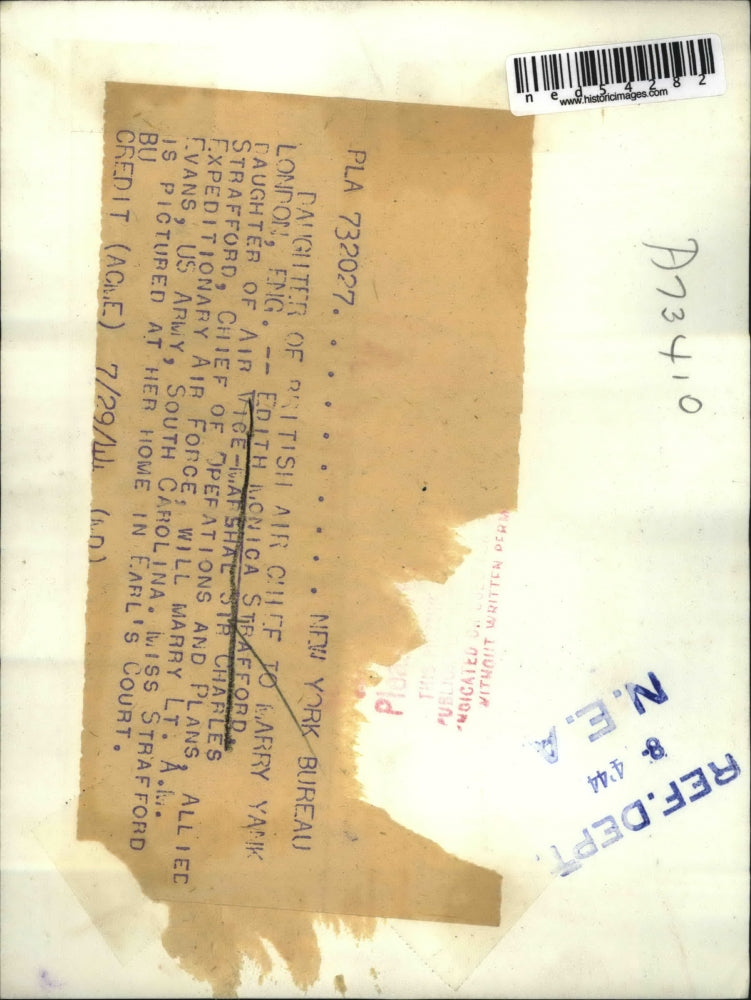 ned54282
www.historicimages.com
A73410
PLA 732027. . . . . . . . . . NEW YORK BUREAU
DAUGHTER OF BRITISH AIR CHIEF TO MARRY YANK
LONDON, ENG. -- EDITH MONICA STRAFFORD
DAUGHTER OF AIR VICE-MARSHAL SIR CHARLES
STRAFFORD, CHIEF OF OPERATIONS AND PLANS, ALLIED
EXPEDITIONARY AIR FORCE, WILL MARRY LT. A.M.
EVANS, US ARMY, SOUTH CAROLINA. MISS STRAFFORD
IS PICTURED AT HER HOME IN EARL'S COURT.
BU
CREDIT (ACME) 7/29/44 (MD)
THIS
INDICATED
WITHOUT WRITTEN
N.E.A
8 4 '44
REF. DEPT.